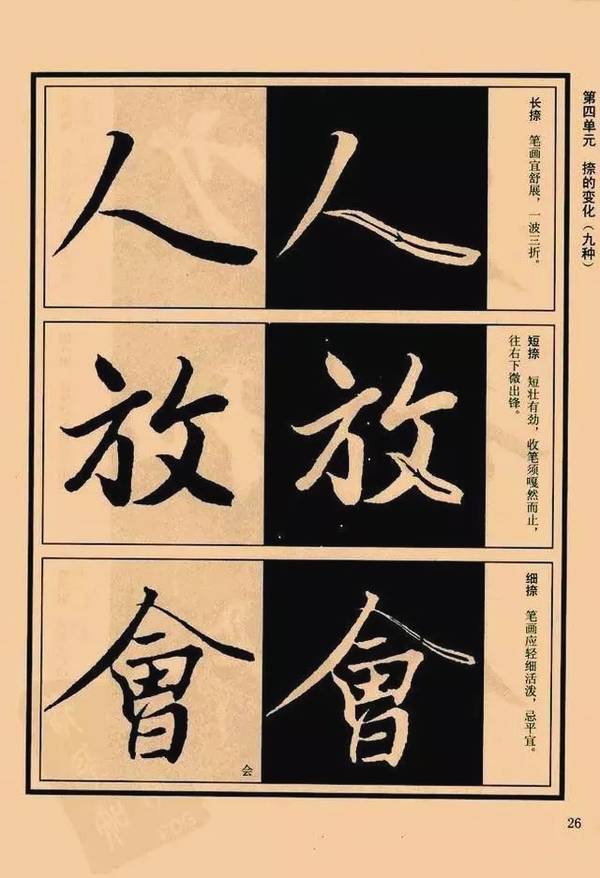 第四单元　捺的变化（九种）
长捺　笔画宜舒展，一波三折。
人人
短捺　短壮有劲，收笔须嘎然而止，
往右下微出锋。
放放
细捺　笔画应轻细活泼，忌平宜。
會會
会
26